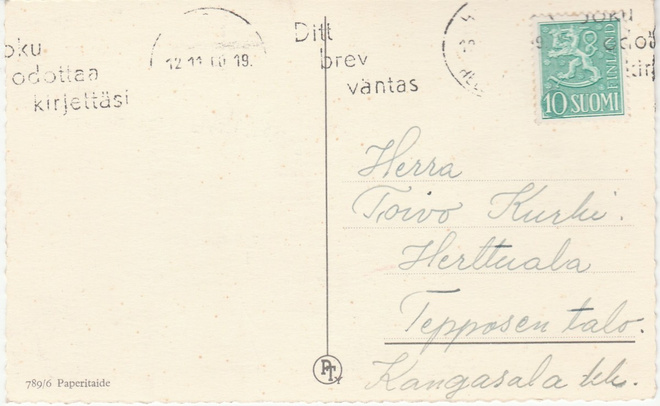 Joku
odottaa
kirjettäsi
12.11.60 19.
Ditt
brev
väntas
JOKU
odo
kir
FINLAND
10 SUOMI
Herra
Toivo Kurki.
Herttuala
Tepposen talo.
Kangasala
PT
789/6 Paperitaide